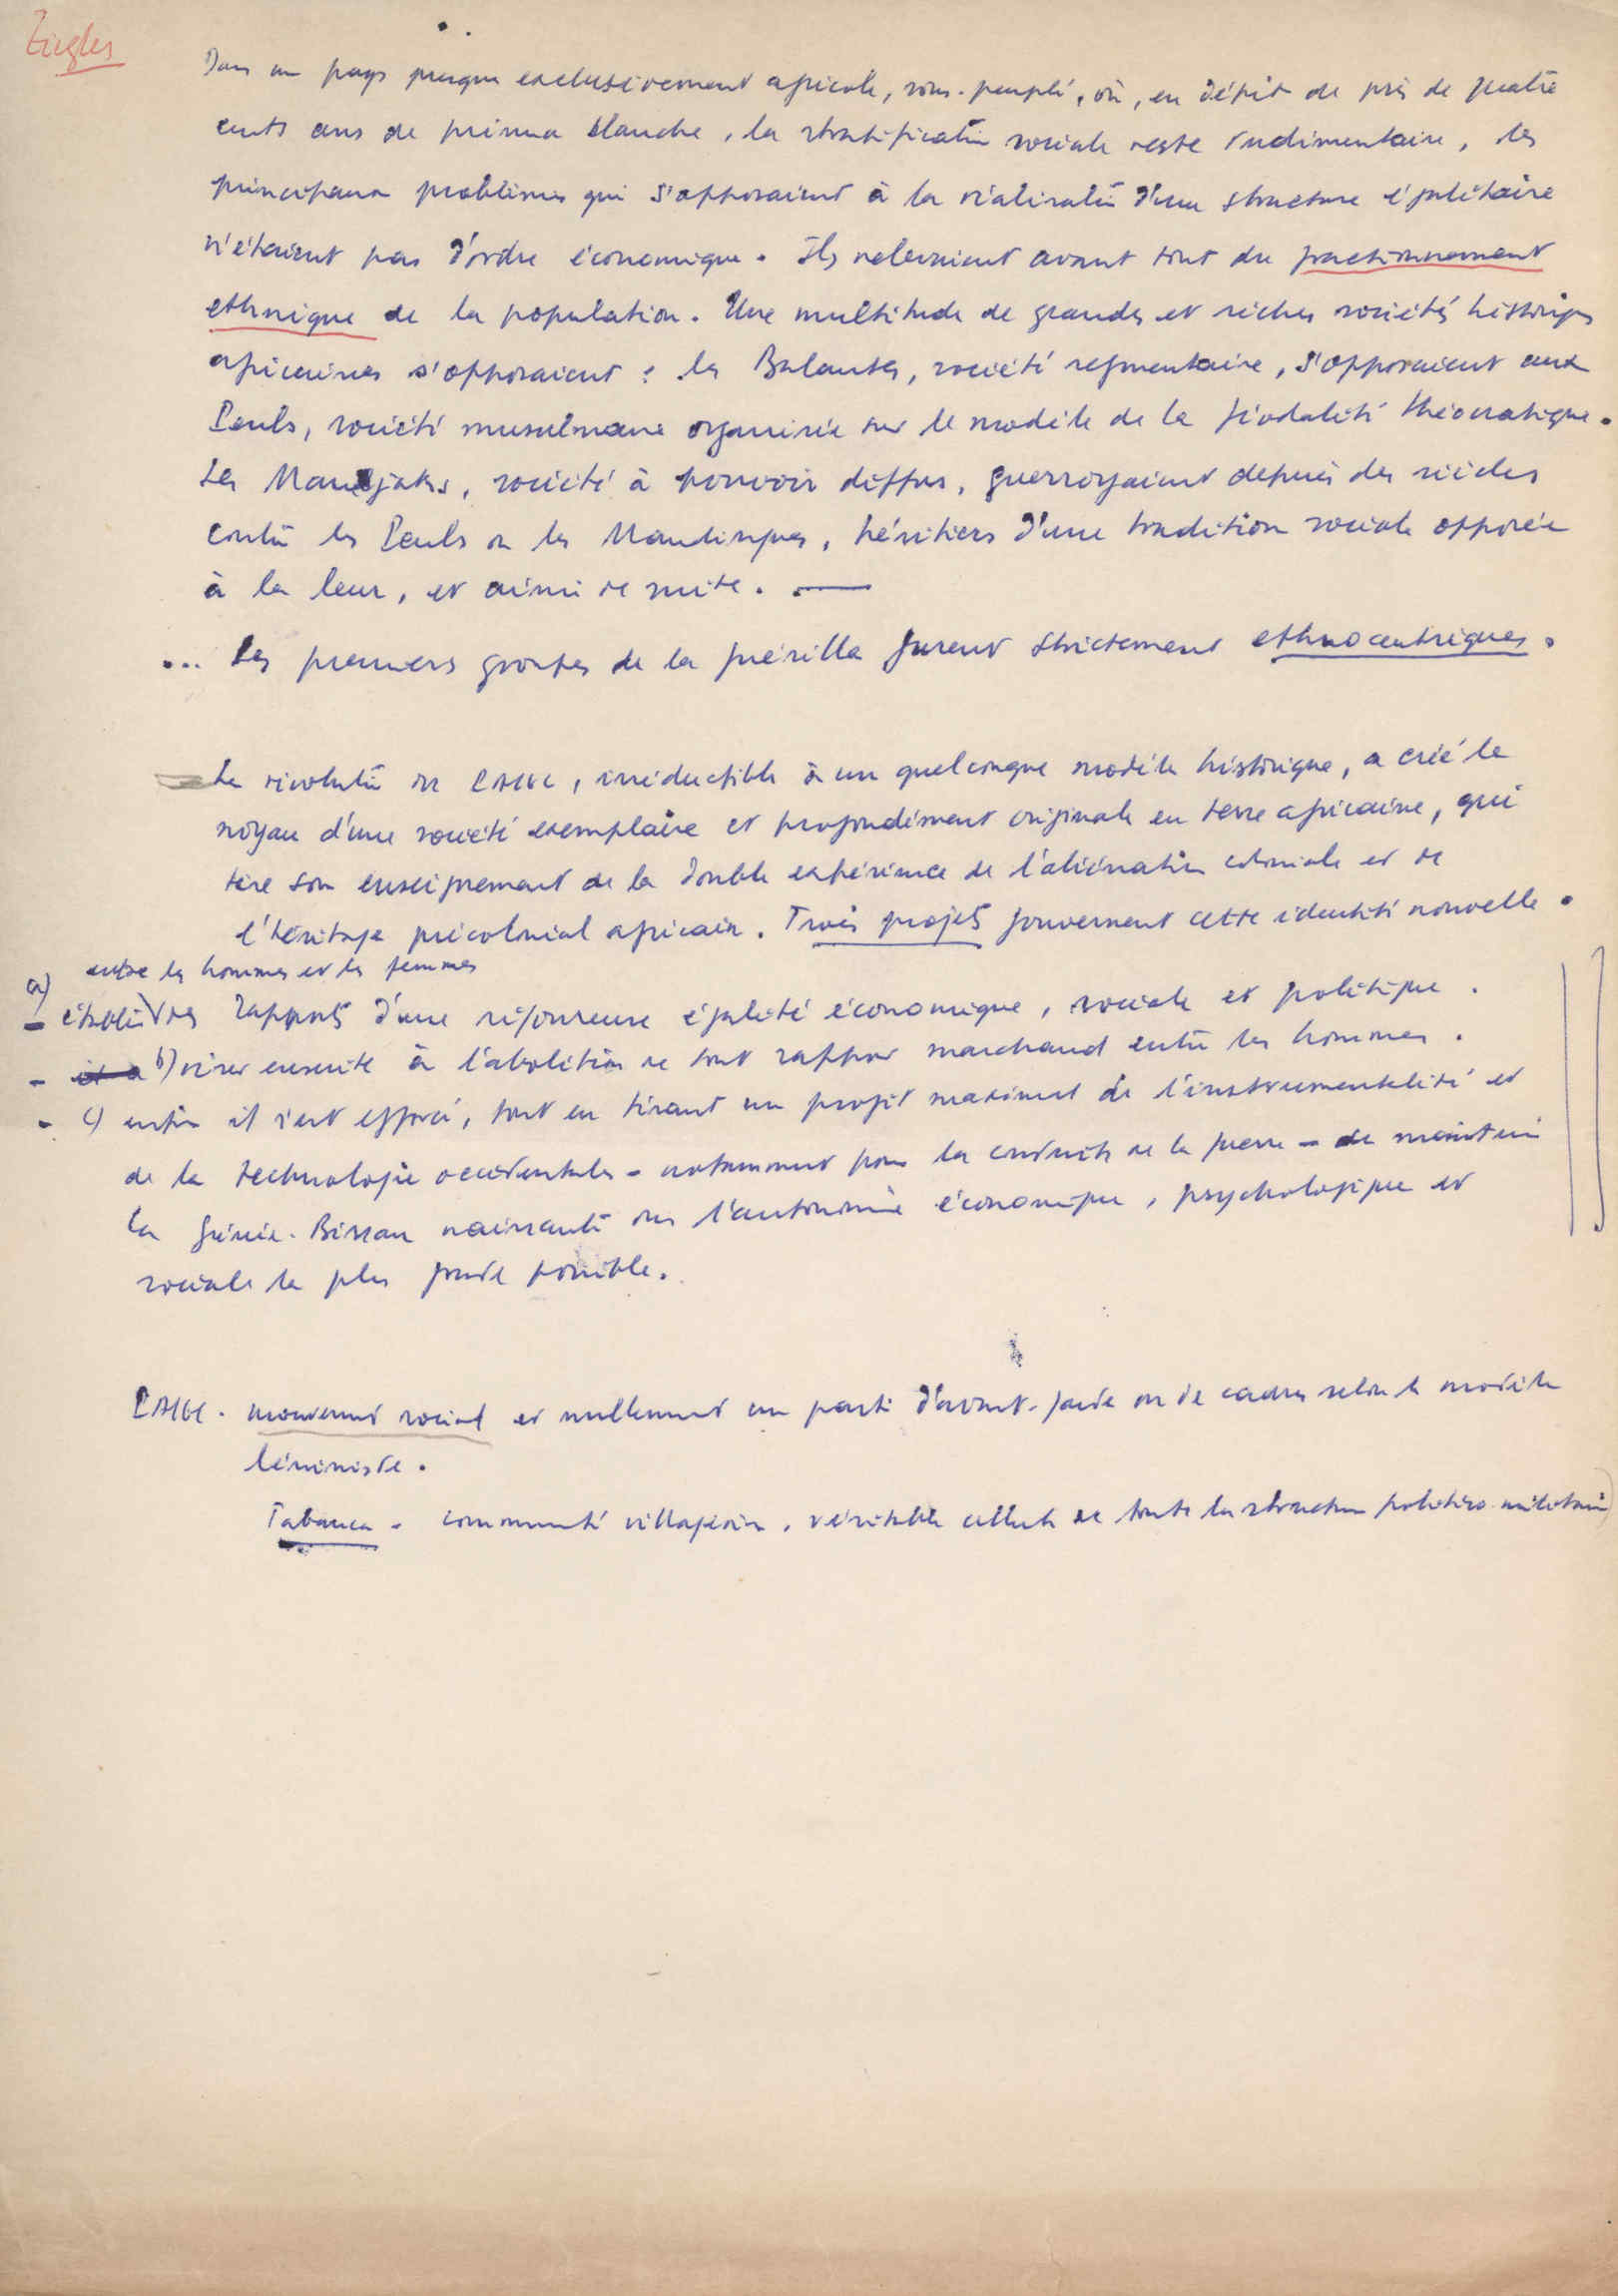 Ziegler
Dans un pays presque exclusivement agricole, sous-peuplé, où, en dépit de près de quatre
cents ans de présence blanche, la stratification sociale reste rudimentaire, les
principaux problèmes qui s'opposaient à la réalisation d'une structure égalitaire
n'étaient pas d'ordre économique. Ils relevaient avant tout du fractionnement
ethnique de la population. Une multitude de grandes et riches sociétés historiques
africaines s'opposaient : les Balantes, société segmentaire, s'opposaient aux
Peuls, société musulmane organisée sur le modèle de la féodalité théocratique.
Les Mandjaks, société à pouvoir diffus, guerroyaient depuis des siècles
contre les Peuls ou les Mandingues, héritiers d'une tradition sociale opposée
à la leur, et ainsi de suite. —
... Les premiers groupes de la guérilla furent strictement ethnocentriques.
La révolution du PAIGC, irréductible à un quelconque modèle historique, a créé le
noyau d'une société exemplaire et profondément originale en terre africaine, qui
tire son enseignement de la double expérience de l'aliénation coloniale et de
l'héritage précolonial africain. Trois projets gouvernent cette identité nouvelle.
entre les hommes et les femmes
a)
- établir des rapports d'une rigoureuse égalité économique, sociale et politique.
- b) viser ensuite à l'abolition de tout rapport marchand entre les hommes.
- c) enfin il s'est efforcé, tout en tirant un profit maximum de l'instrumentalité et
de la technologie occidentales - notamment pour la conduite de la guerre - de maintenir
la Guinée-Bissau naissante dans l'autonomie économique, psychologique et
sociale la plus grande possible.
PAIGC - mouvement social et nullement un parti d'avant-garde ou de cadres selon le modèle
léniniste.
Tabanca - communauté villageoise, véritable cellule de toute la structure politico-militaire